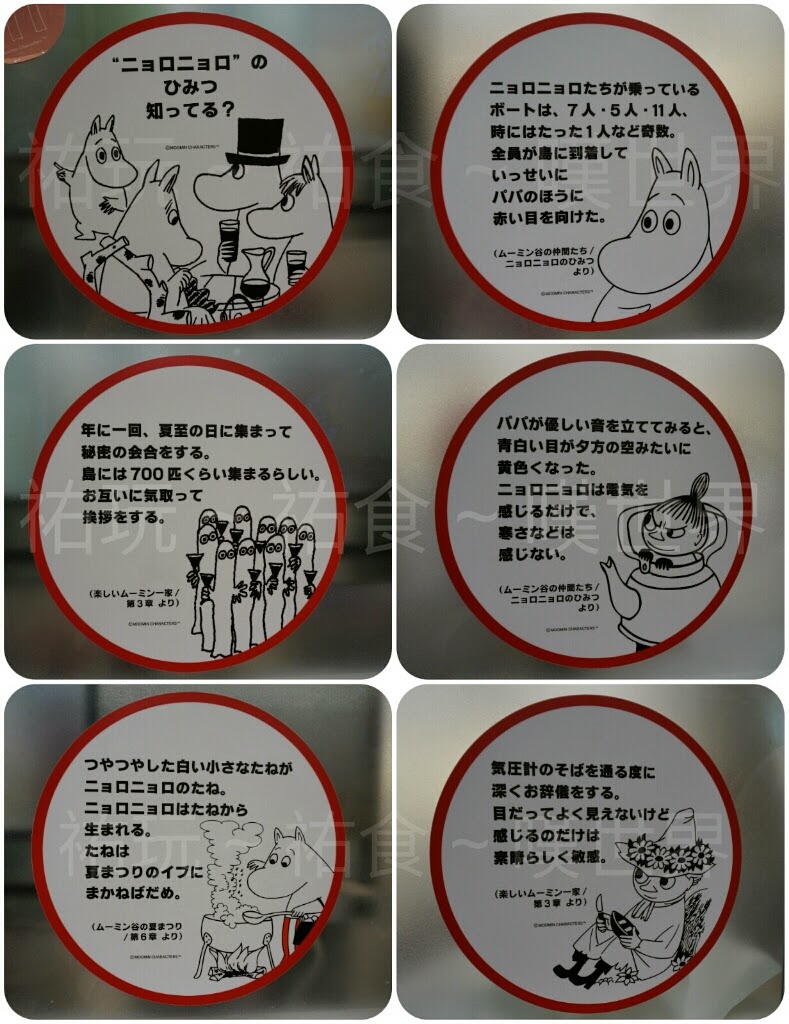 “ニョロニョロ”の
ひみつ
知ってる？
©MOOMIN CHARACTERS™
ニョロニョロたちが乗っている
ボートは、7人・5人・11人、
時にはたった1人など奇数。
全員が島に到着して
いっせいに
パパのほうに
赤い目を向けた。
（ムーミン谷の仲間たち/
ニョロニョロのひみつ
より）
©MOOMIN CHARACTERS™
祐玩～祐食～嘆世界
年に一回、夏至の日に集まって
秘密の会合をする。
島には700匹くらい集まるらしい。
お互いに気取って
挨拶をする。
（楽しいムーミン一家/
第3章 より）
©MOOMIN CHARACTERS™
パパが優しい音を立ててみると、
青白い目が夕方の空みたいに
黄色くなった。
ニョロニョロは電気を
感じるだけで、
寒さなどは
感じない。
（ムーミン谷の仲間たち/
ニョロニョロのひみつ
より）
©MOOMIN CHARACTERS™
祐玩～祐食～嘆世界
つやつやした白い小さなたねが
ニョロニョロのたね。
ニョロニョロはたねから
生まれる。
たねは
夏まつりのイブに
まかねばだめ。
（ムーミン谷の夏まつり
/第6章 より）
©MOOMIN CHARACTERS™
気圧計のそばを通る度に
深くお辞儀をする。
目だってよく見えないけど
感じるのだけは
素晴らしく敏感。
（楽しいムーミン一家/
第3章 より）
©MOOMIN CHARACTERS™
祐玩～祐食～嘆世界